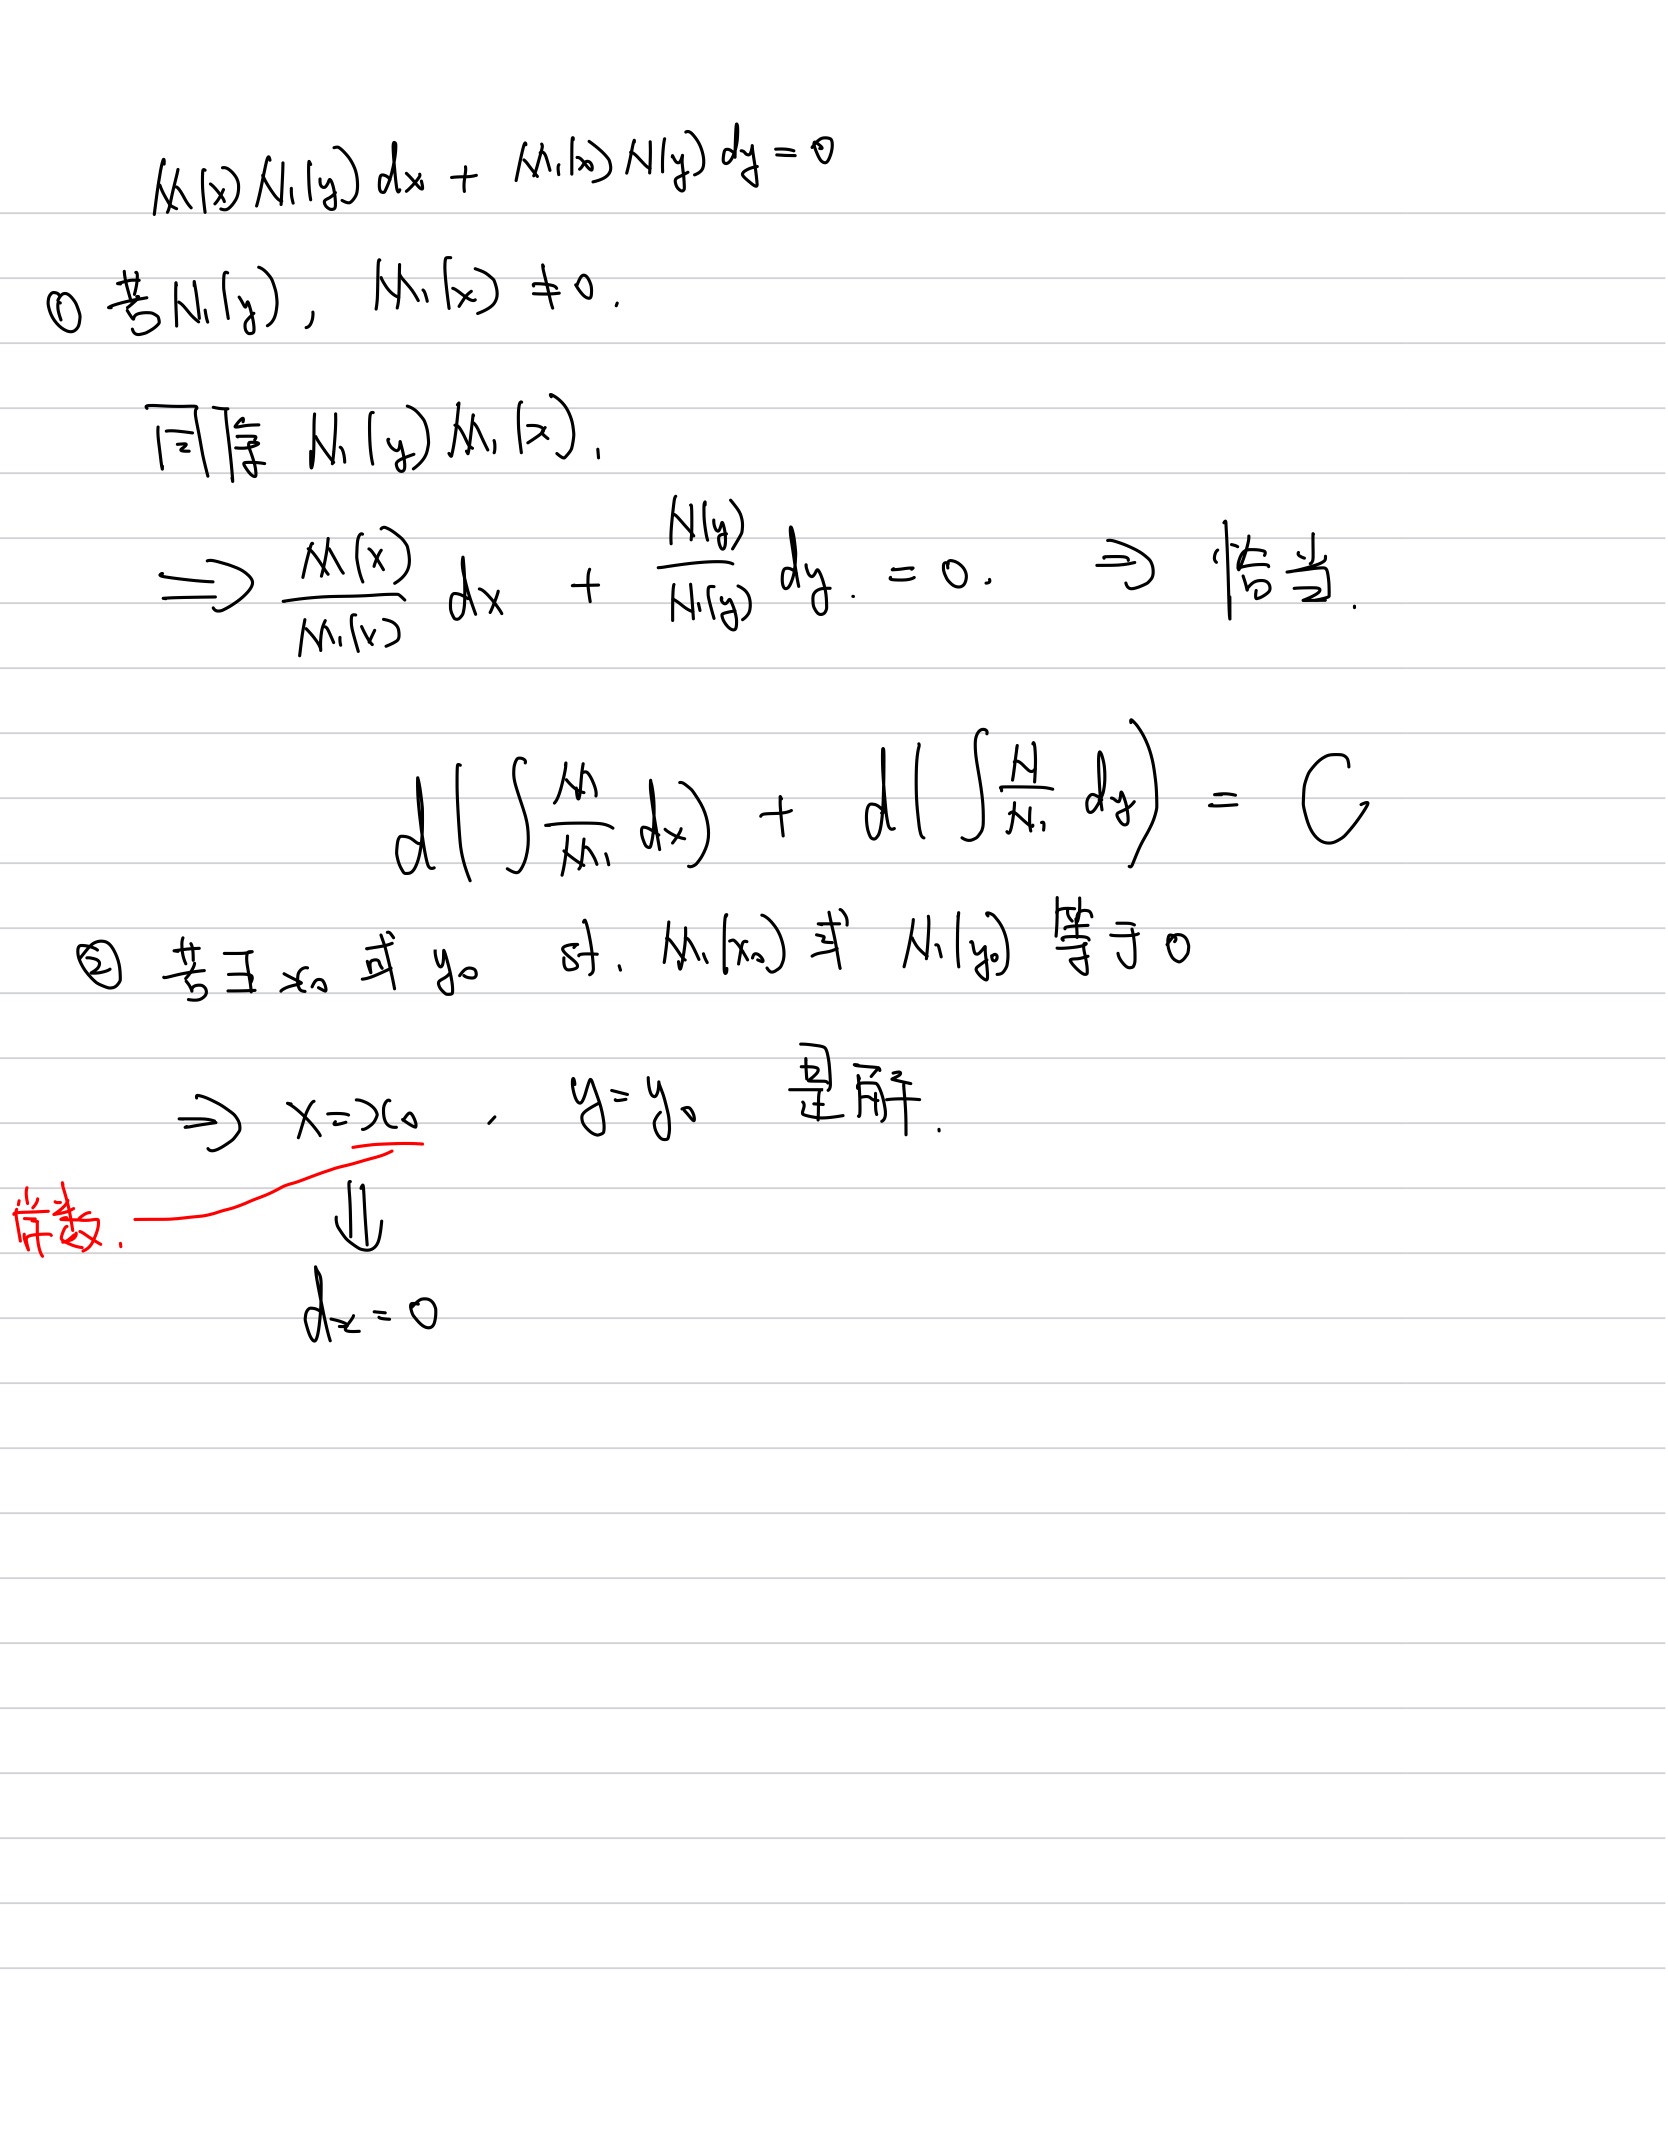 M(x) N₁(y) dx + M₁(x) N(y) dy = 0
① 若N₁(y), M₁(x) ≠ 0.
同除 N₁(y) M₁(x).
⇒ M(x)/M₁(x) dx + N(y)/N₁(y) dy. = 0. ⇒ 恰当.
d(∫ M/M₁ dx) + d(∫ N/N₁ dy) = C
② 若∃ x₀ 或 y₀ st. M₁(x₀) 或 N₁(y₀) 等于 0
⇒ x = x₀ . y = y₀ 是解.
常数.
⇓
dx = 0